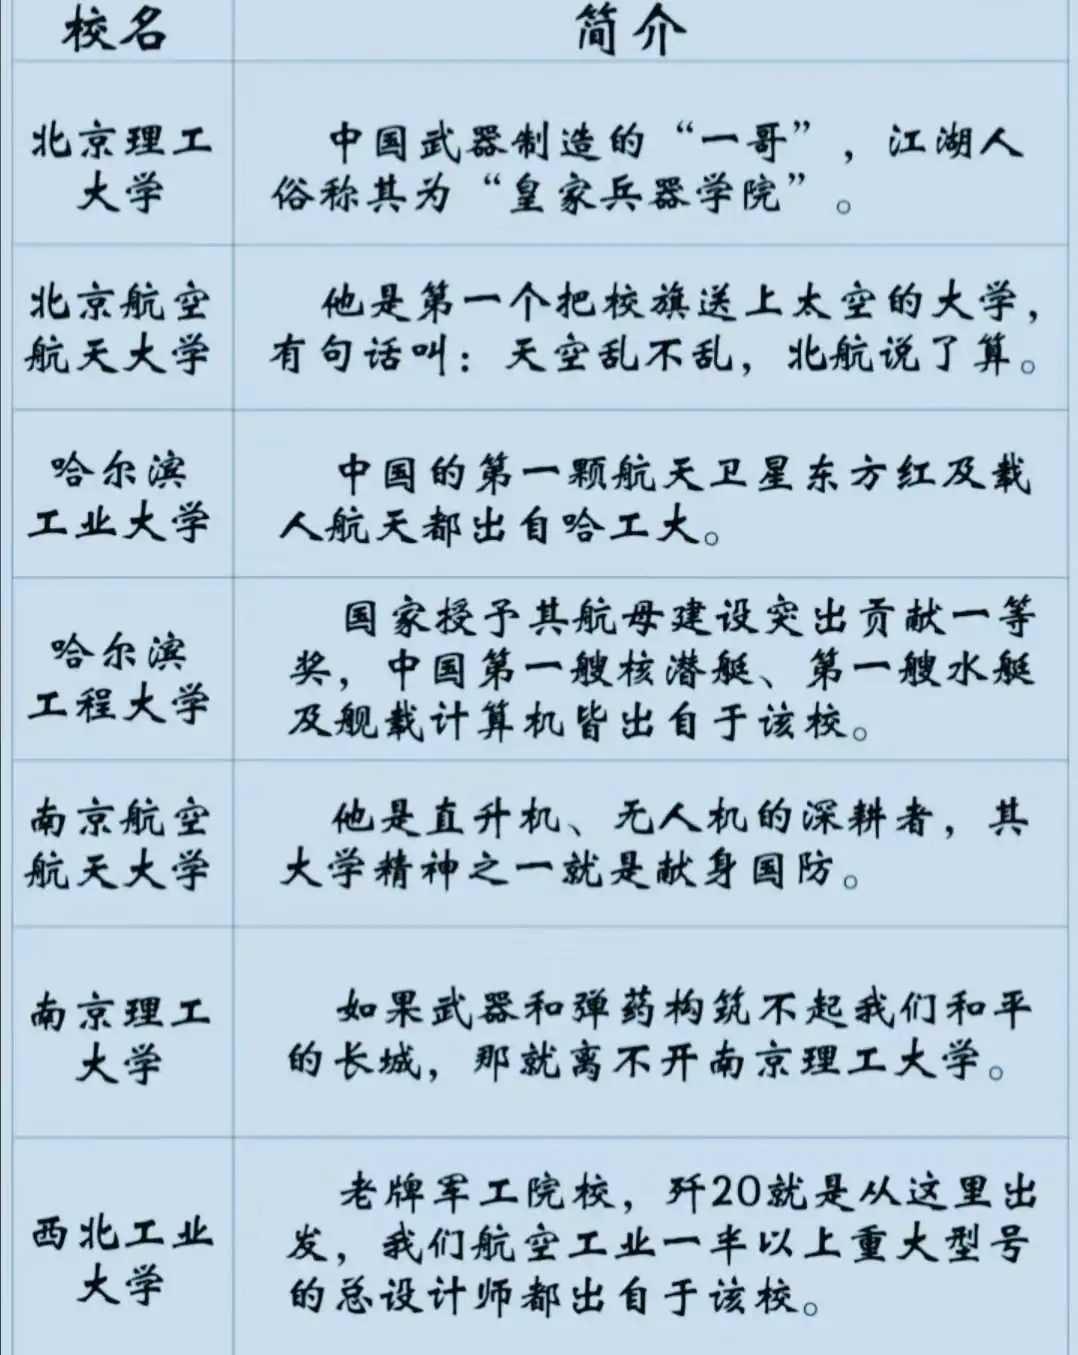 校名
简介
北京理工
大学
中国武器制造的“一哥”，江湖人
俗称其为“皇家兵器学院”。
北京航空
航天大学
他是第一个把校旗送上太空的大学，
有句话叫：天空乱不乱，北航说了算。
哈尔滨
工业大学
中国的第一颗航天卫星东方红及载
人航天都出自哈工大。
哈尔滨
工程大学
国家授予其航母建设突出贡献一等
奖，中国第一艘核潜艇、第一艘水艇
及舰载计算机皆出自于该校。
南京航空
航天大学
他是直升机、无人机的深耕者，其
大学精神之一就是献身国防。
南京理工
大学
如果武器和弹药构筑不起我们和平
的长城，那就离不开南京理工大学。
西北工业
大学
老牌军工院校，歼20就是从这里出
发，我们航空工业一半以上重大型号
的总设计师都出自于该校。